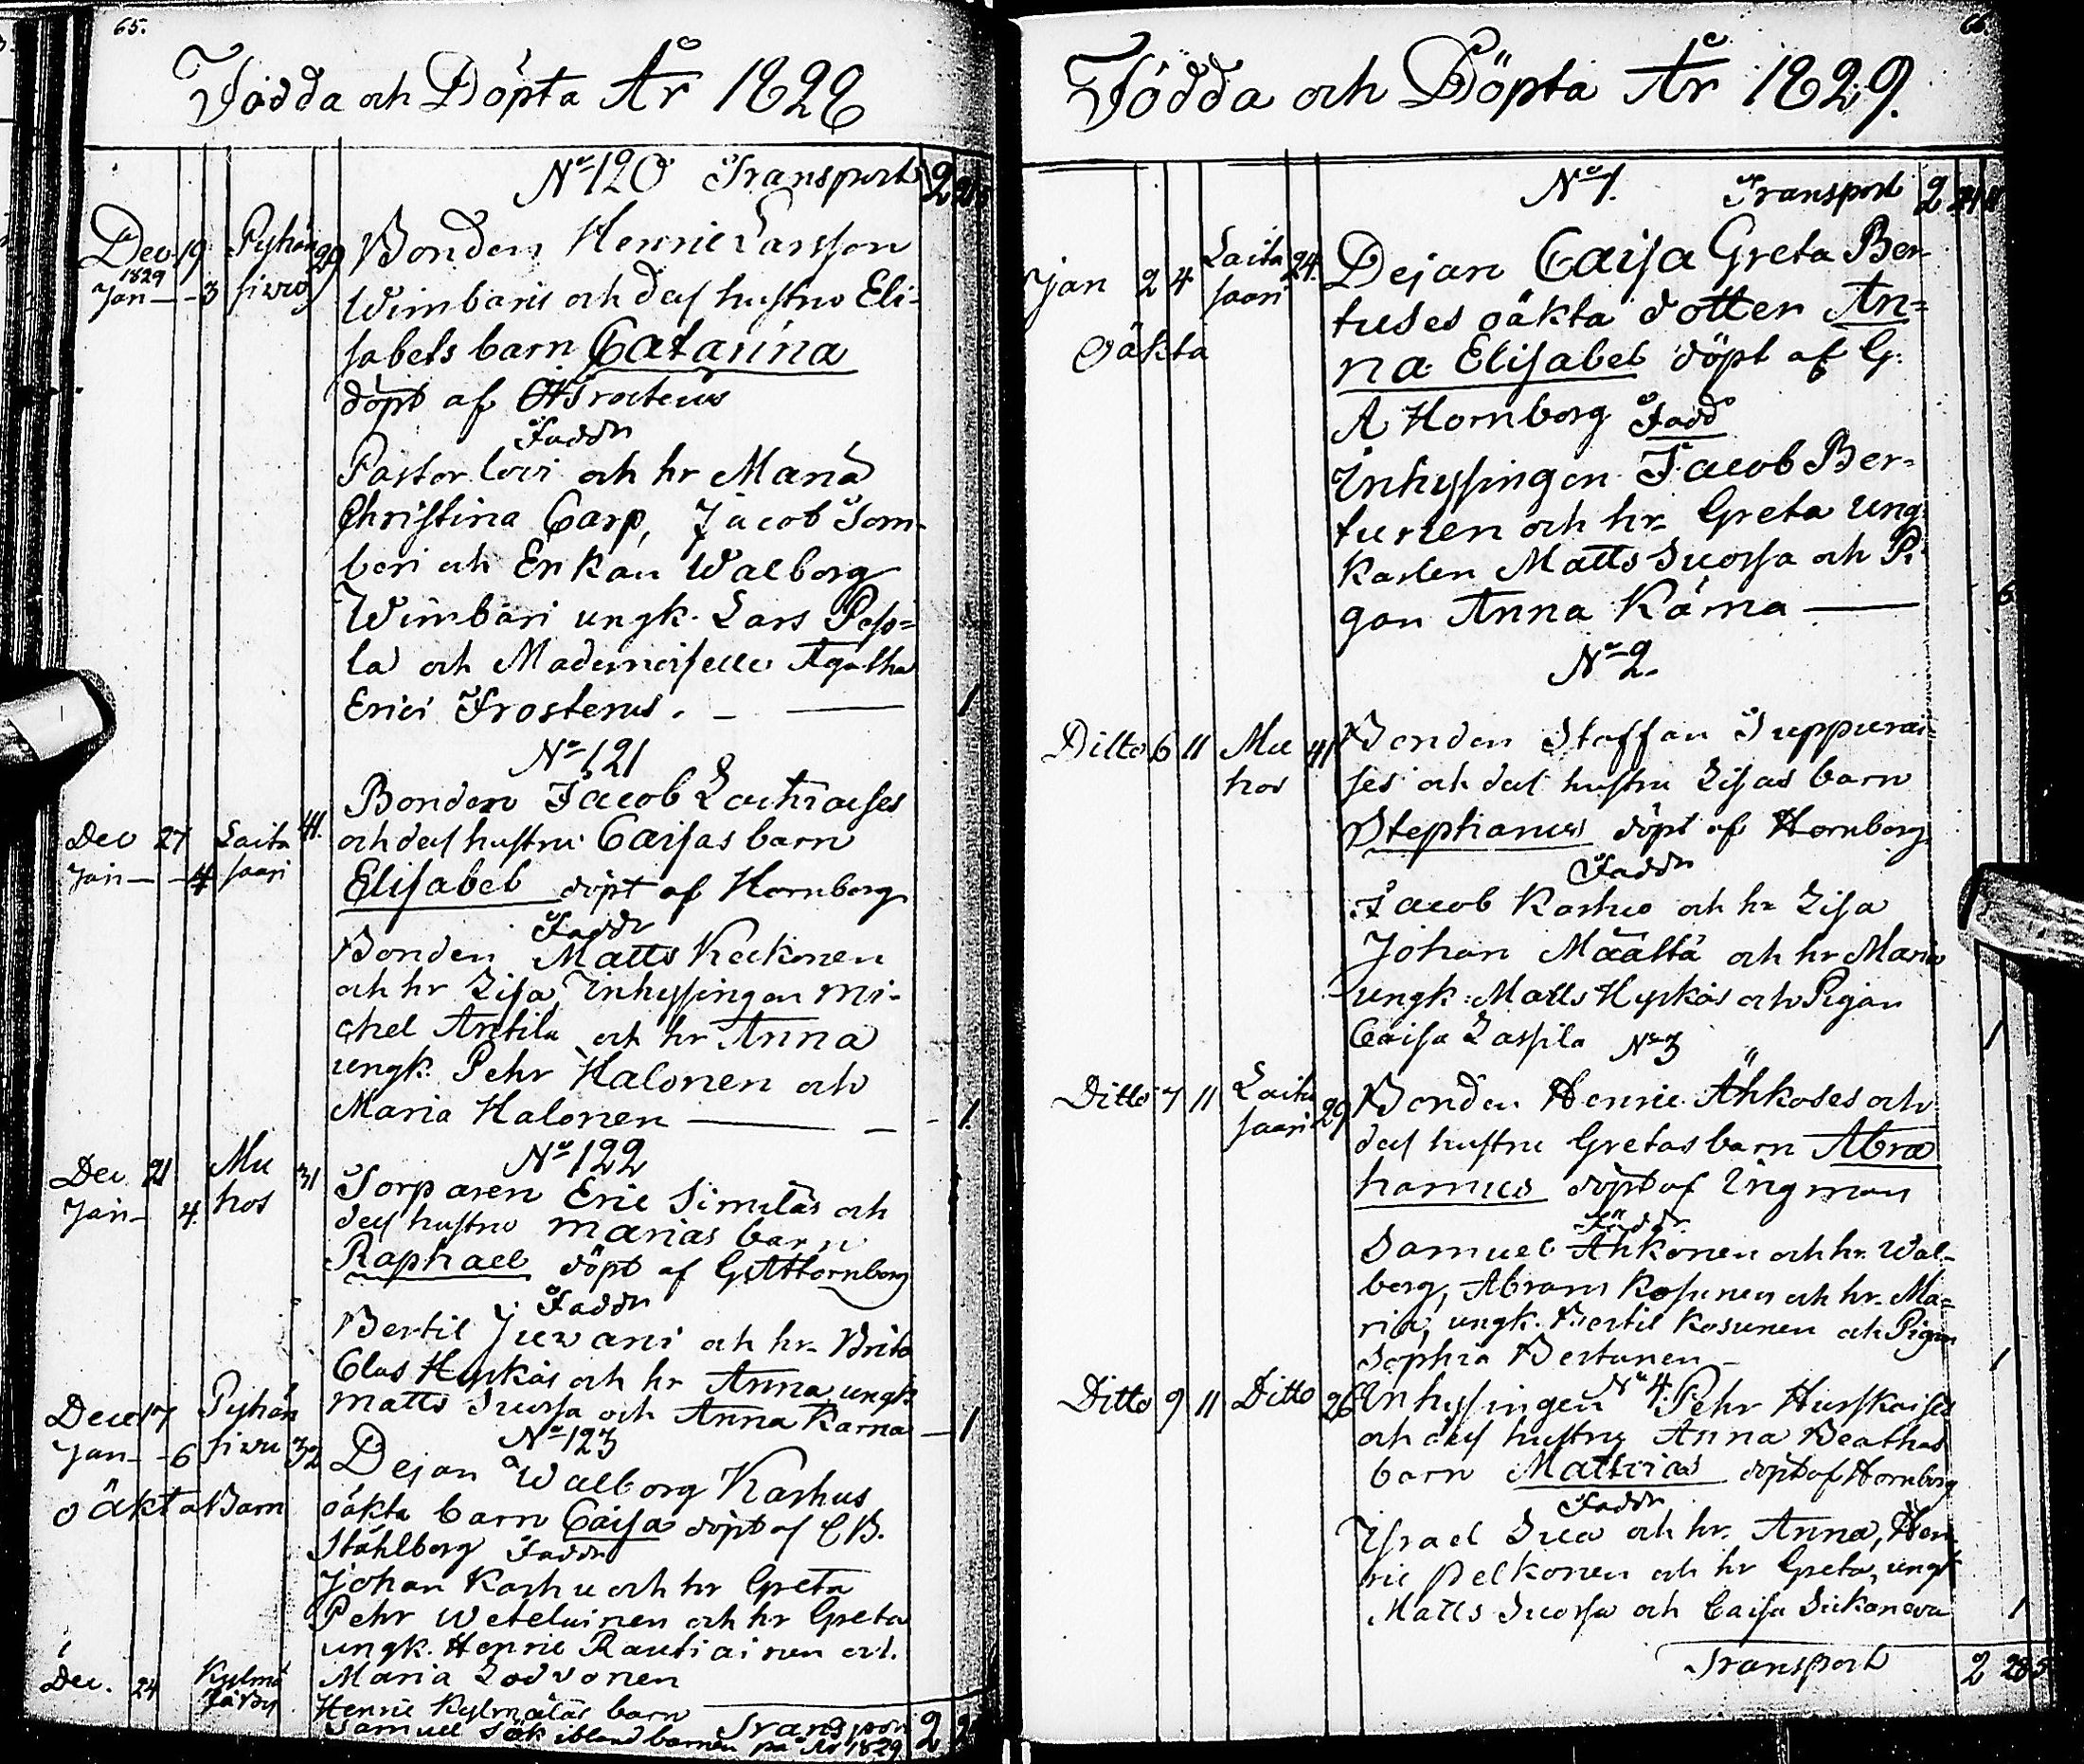 65.
Födda och Döpta År 1828
No 120 Transport 2
Dec 19 Pyhän 29 Bonden Henric Larsson
1829
Jan — 3 sivu Wimbaris och dess hustru Eli-
sabets barn Catarina
döpt af
Faddr
Pastor Lovi och hr Maria
Christina Carp, Jacob Tom-
beri och Enkan Walborg
Wimbari ungk. Lars Poso=
la och Mademoiselle Agatha
Erici Frosterus. — 1
No 121
Bonden Jacob
Dec 27 Laita 41. och dess hustru Caisas barn
Jan — 4 saari Elisabet döpt af Hornborg
Faddr
Bonden Matts Keckonen
och hr Lisa, Inhysingen Mi-
chel Antila och hr Anna
ungk. Pehr Halonen och
Maria Halonen — 1.
No 122
Dec 21 Mu 31 Torparen Eric Similäs och
Jan — 4. hos dess hustru Marias barn
Raphael döpt af G A Hornborg
Faddr
Bertil Juvani och hr Brita
Clas Hyrkäs och hr Anna ungk
Matts Suorsa och Anna Karna — 1
No 123
Dece 17 Pyhän
Jan — 6 sivu 32 Dejan Walborg Karhus
oäkta Barn oäkta barn Caisa döpt af C B.
Ståhlberg Faddr
Johan Karhu och hr Greta
Pehr Weteläinen och hr Greta
ungk. Henric Rautiainen och
Maria Lodvonen
Dec. 24 Kylmä
Henric Kylmäläs barn
Samuel sök ibland barnen på År 1829
Transport 2
66.
Födda och Döpta År 1829.
No 1. Transport 2 21
Jan 2 4 Laita 24. Dejan Caisa Greta Ber-
saari tuses oäkta dotter An=
oäkta na Elisabet döpt af G.
A Hornborg Fadd
Inhysingen Jacob Ber=
tunen och hr Greta ung
karlen Matts Suorsa och Pi
gan Anna Kärna — 6
No 2.
Ditto 6 11 Mu 41 Bonden Staffan Suppurai-
hos ses och dess hustru Lisas barn
Stephanus döpt af Hornborg
Faddr
Jacob Karhu och hr Lisa
Johan Määttä och hr Maria
ungk. Matts Hyrkäs och Pigan
Caisa Laspila 1
No 3
Ditto 7 11 Laita 29 Bonden Henric Ähkoses och
saari dess hustru Gretas barn Abra
hamus döpt af Ingman
Faddr
Samuel Ähkonen och hr. Wal-
borg, Abram Kosunen och hr. Ma=
ria, ungk. Bertil Kosunen och Pigan
Sophia Bertunen — 1
No 4.
Ditto 9 11 Ditto 26 Inhysingen Pehr Hurskaises
och dess hustru Anna Beathas
barn Mathias döpt af Hornborg
Faddr
Israel Sua och hr. Anna, Hen
ric Pelkonen och hr Greta, ungk
Matts Suorsa och Caisa 1
Transport 2